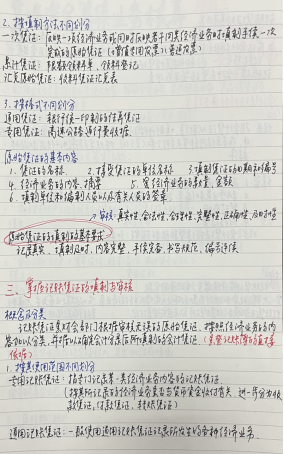 2. 按填制方法不同划分
一次凭证：反映一项经济业务或同时反映若干同类经济业务的填制手续一次
完成的原始凭证（增值专用发票）（普通发票）
累计凭证：限额领料单、领料登记
汇总原始凭证：领料凭证汇总表
3. 按格式不同划分
通用凭证：银行统一印制的结算凭证
专用凭证：高速公路通行费收据
原始凭证的基本内容
1. 凭证的名称 2. 接受凭证的单位名称 3. 填制凭证的日期和编号
4. 经济业务的内容、摘要 5. 经济业务的数量、金额
6. 填制单位和编制人员以及有关人员的签章
审核：真实性、合法性、合理性、完整性、正确性、及时性
原始凭证的填制的基本要求
记录真实、填制及时、内容完整、手续完备、书写规范、编号连续
三、掌握记账凭证的填制与审核
概念及分类
记账凭证是财会部门根据审核无误的原始凭证，按照经济业务的内
容加以分类，并据以确定会计分录后所填制的会计凭证（是登记账簿的直接
依据）
1. 按其使用范围不同划分
专用记账凭证：指专门记录某一类经济业务内容的记账凭证
（按其所记录的经济业务是否与货币资金收付有关，进一步分为收
款凭证、付款凭证、转账凭证）
通用记账凭证：一般使用通用记账凭证记录所发生的各种经济业务